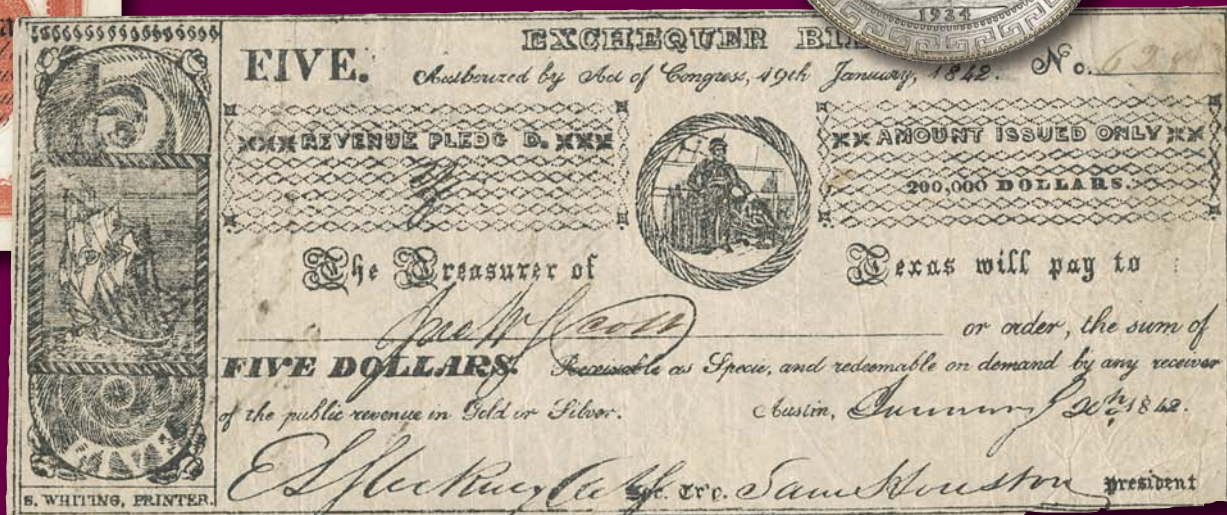 1934
EXCHEQUER
FIVE.
Authorized by Act of Congress, 19th January, 1842. No.
REVENUE PLEDG D.
AMOUNT ISSUED ONLY
200,000 DOLLARS.
The Treasurer of Texas will pay to
Scott or order, the sum of
FIVE DOLLARS. Receivable as Specie, and redeemable on demand by any receiver
of the public revenue in Gold or Silver. Austin, 1842.
Sam Houston president
S. WHITING, PRINTER.
5
FIVE